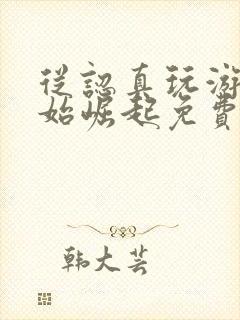 從認真玩游
始崛起免費
韩大芸